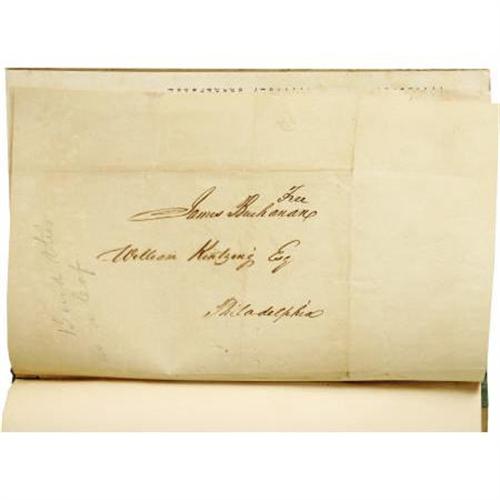 Free
James Buchanan
William Kintzing Esq
Philadelphia